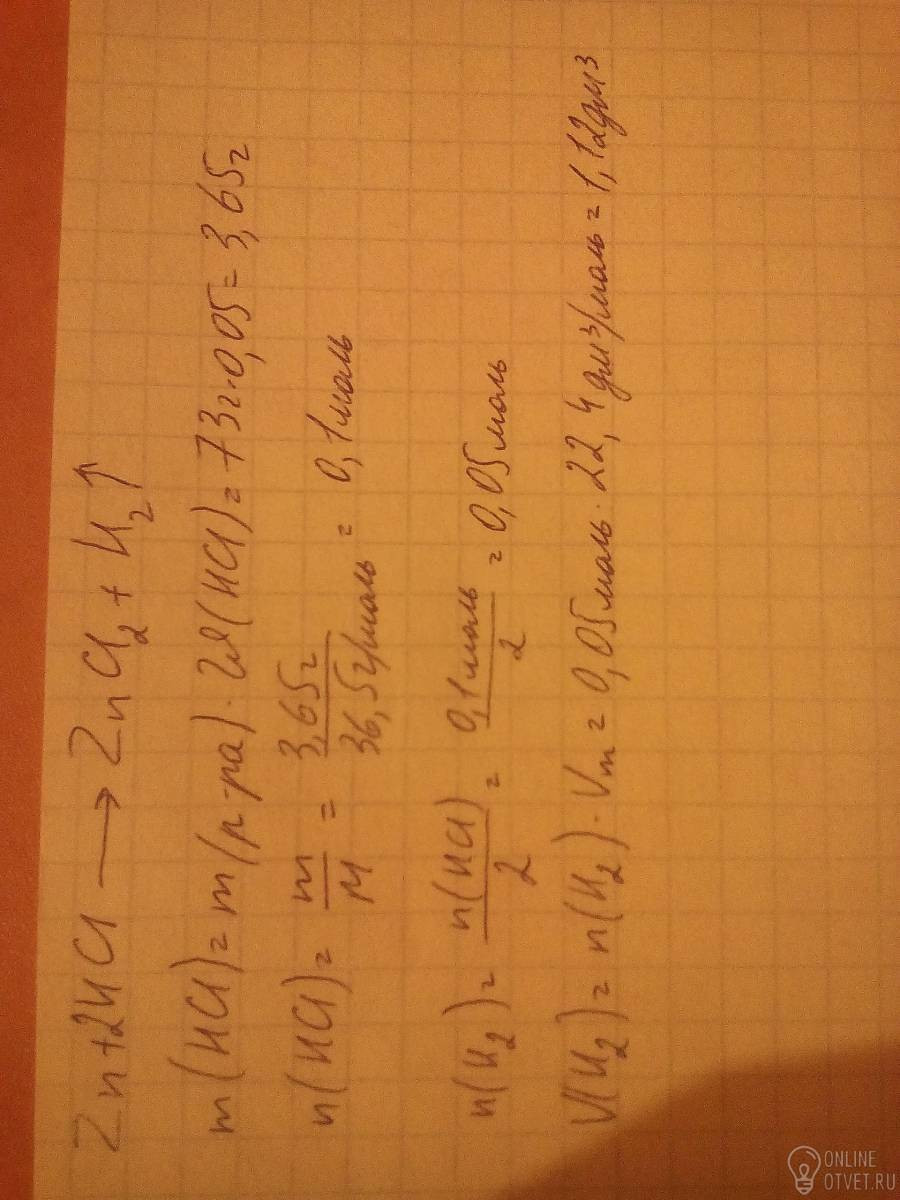 Zn+2HCl → ZnCl₂ + H₂↑
m(HCl) = m(р-ра) · W(HCl) = 73г · 0,05 = 3,65г
n(HCl) = m/M = 3,65г/36,5г/моль = 0,1моль
n(H₂) = n(HCl)/2 = 0,1моль/2 = 0,05моль
V(H₂) = n(H₂) · Vm = 0,05моль · 22,4дм³/моль = 1,12дм³
ONLINE
OTVET.RU